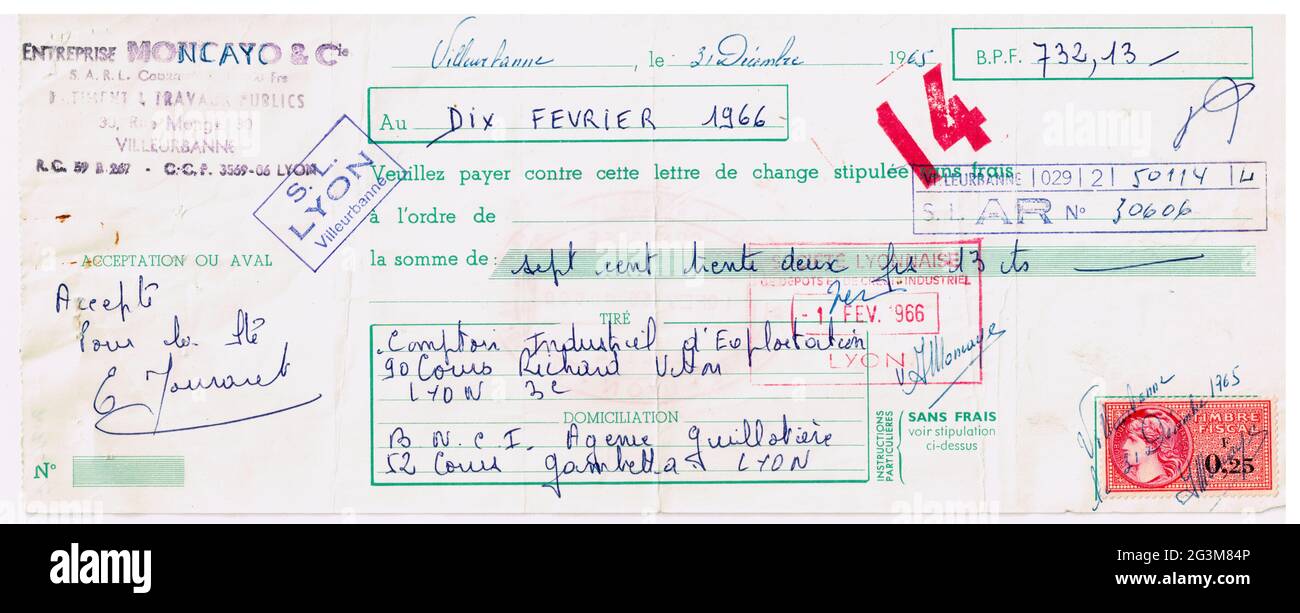 ENTREPRISE MONCAYO & Cie
S. A. R. L. Frs
BATIMENT & TRAVAUX PUBLICS
30, Rue 30
VILLEURBANNE
R. C. 59 B 267 - C. C. P. 3569-06 LYON
S. L.
LYON
Villeurbanne
Villeurbanne, le 31 Décembre 1965
B.P.F. 732,13
Au DIX FEVRIER 1966
14
Veuillez payer contre cette lettre de change stipulée sans frais
VILLEURBANNE | 029 | 2 | 50114 | 4
S. L. AR N° 30606
à l'ordre de
la somme de : sept cent trente deux frs 13 cts
SOCIÉTÉ LYONNAISE
DE DEPOTS & DE CREDIT INDUSTRIEL
-1 FEV. 1966
LYON
ACCEPTATION OU AVAL
Accepté
Pour la Sté
N°
TIRÉ
Comptoir Industriel d'Exploitation
90 Cours Richard Vitton
LYON 3e
DOMICILIATION
B.N.C.I. Agence Guillotière
52 Cours Gambetta LYON
INSTRUCTIONS
PARTICULIÈRES
SANS FRAIS
voir stipulation
ci-dessus
V. JMoncayo
Villeurbanne
31 Décembre 1965
TIMBRE
FISCAL
F
0,25
alamy
Image ID: 2G3M84P
www.alamy.com